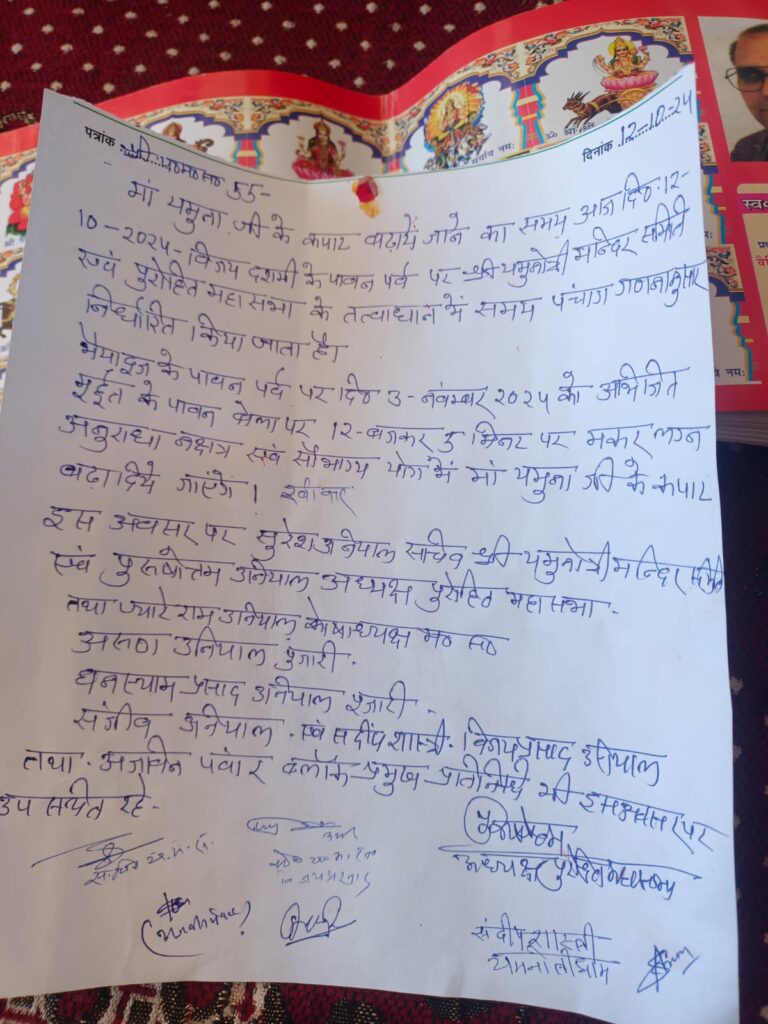 पत्रांक श्री.य.म.स. 55-
दिनांक 12.10.24
मां यमुना जी के कपाट बढ़ायें जाने का समय आज दि० 12-
10-2024- विजय दशमी के पावन पर्व पर श्री यमुनोत्री मन्दिर समिति
एवं पुरोहित महासभा के तत्वाधान में समय पंचाग गणनानुसार
निर्धारित किया जाता है।
भैयादूज के पावन पर्व पर दि० 3- नवम्बर 2024 को अभिजित
मुर्हूत के पावन वेला पर 12- बजकर 5 मिनट पर मकर लग्न
अनुराधा नक्षत्र एवं सौभाग्य योग में मां यमुना जी के कपाट
बढ़ा दिये जाएंगे।
इस अवसर पर सुरेश उनियाल सचिव श्री यमुनोत्री मन्दिर समिति
एवं पुरुषोत्तम उनियाल अध्यक्ष पुरोहित महासभा -
तथा प्यारे राम उनियाल कोषाध्यक्ष म० स०
अरुण उनियाल पुजारी.
घनश्याम प्रसाद उनियाल पुजारी -
संजीव उनियाल. एवं संदीप शास्त्री. विजय प्रसाद उनियाल
तथा. अजबिन पंवार ब्लॉक प्रमुख प्रतिनिधि भी इस अवसर पर
उपस्थित रहे-
पुरुषोत्तम
अध्यक्ष पुरोहित महासभा
संदीप शास्त्री